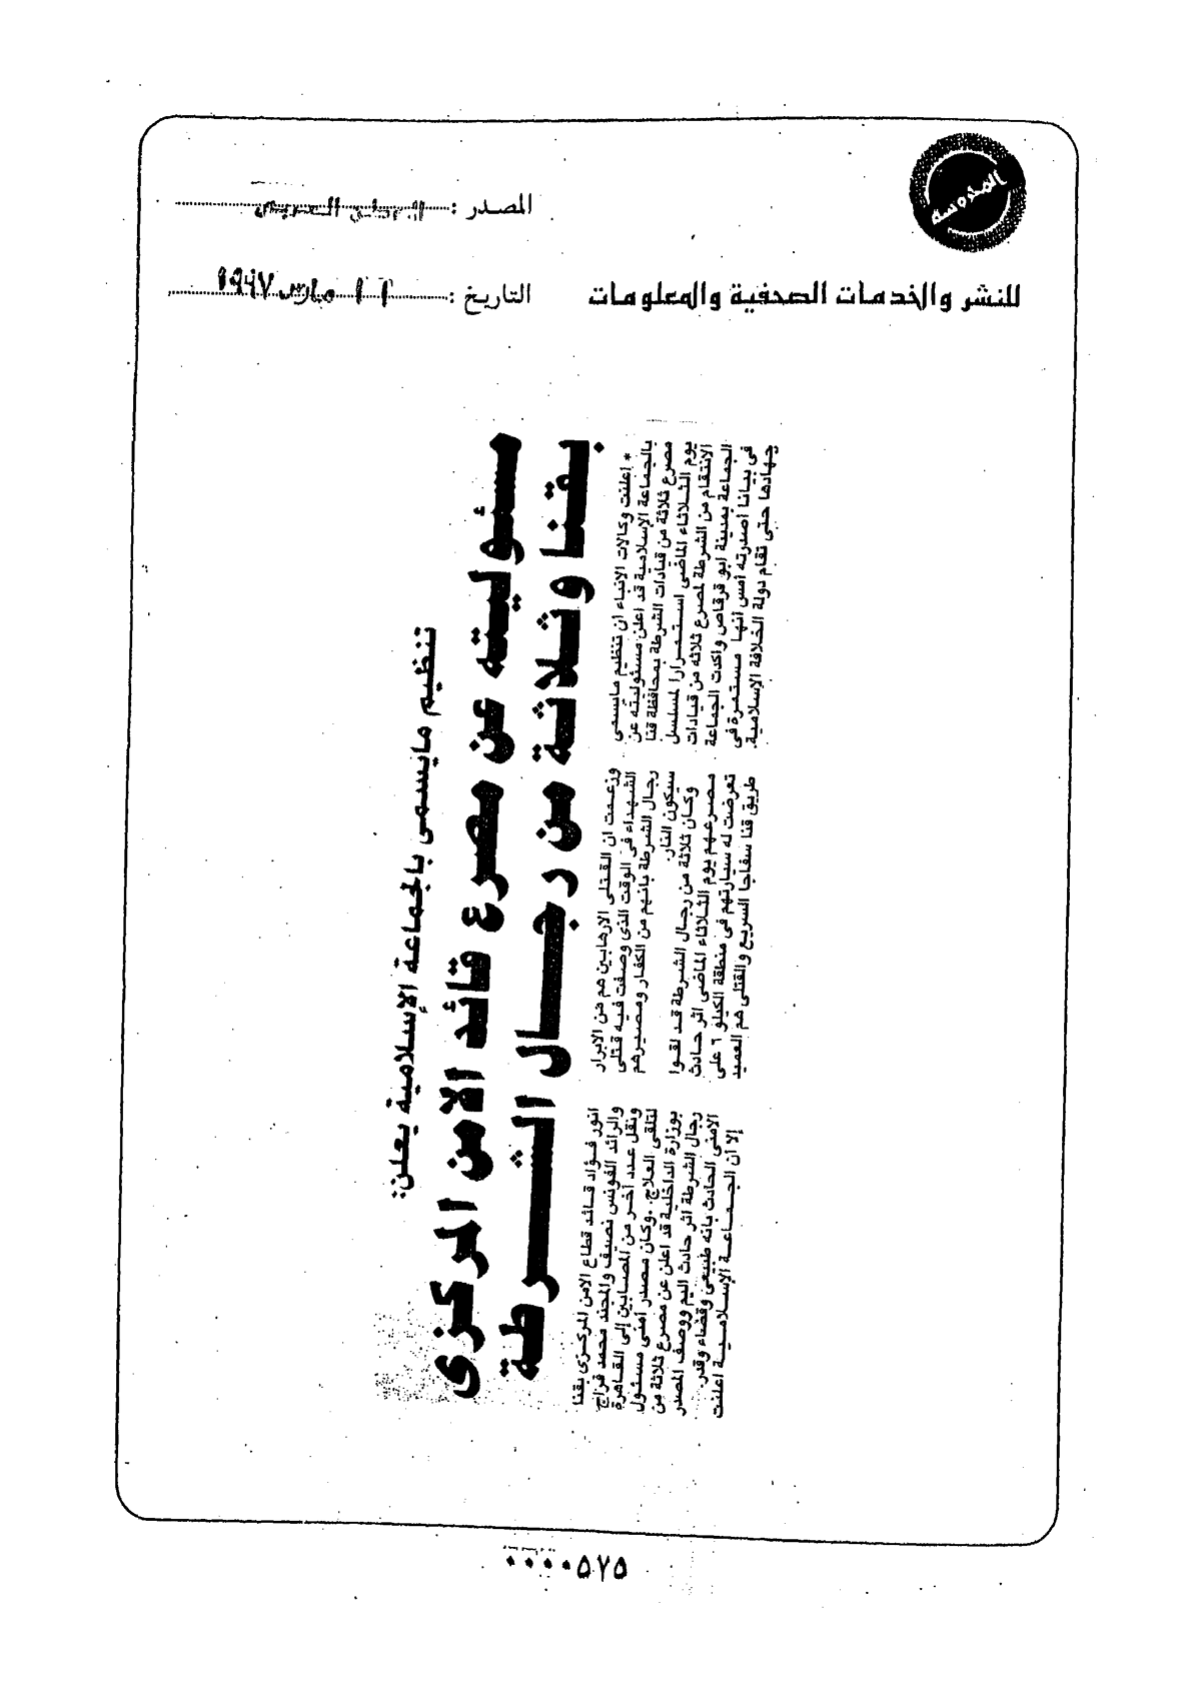 المحروسة
المصدر :
الوطن العربى
للنشر والخدمات الصحفية والمعلومات
التاريخ :
مارس ١٩٩٧
تنظيم مايسمى بالجماعة الإسلامية يعلن:
مسئوليته عن مصرع قائد الامن المركزى
بقنا وثلاثة من رجال الشرطة
* اعلنت وكالات الانباء ان تنظيم مايسمى
بالجماعة الإسلامية قد اعلن مسئوليته عن
مصرع ثلاثة من قيادات الشرطة بمحافظة قنا
يوم الثلاثاء الماضى استمرارا لمسلسل
الانتقام من الشرطة لمصرع ثلاثه من قيادات
الجماعة بمدينة ابو قرقاص واكدت الجماعة
فى بيانا اصدرته أمس انها مستمرة فى
جهادها حتى تقام دولة الخلافة الإسلامية.
وزعمت ان القتلى الارهابين هم من الابرار
الشهداء فى الوقت الذى وصفت فيه قتلى
رجال الشرطة بانهم من الكفار ومصيرهم
سيكون النار.
وكان ثلاثة من رجال الشرطة قد لقوا
مصرعهم يوم الثلاثاء الماضى اثر حادث
تعرضت له سيارتهم فى منطقة الكيلو ٦ على
طريق قنا سفاجا السريع والقتلى هم العميد
انور فؤاد قائد قطاع الامن المركزى بقنا
والرائد الفونس نصيف والمجند محمد فراج
ونقل عدد أخر من المصابين إلى القاهرة
لتلقى العلاج. .وكان مصدر أمنى مسئول
بوزارة الداخلية قد اعلن عن مصرع ثلاثة من
رجال الشرطة اثر حادث اليم ووصف المصدر
الامنى الحادث بانه طبيعى وقضاء وقدر.
إلا أن الجماعة الإسلامية اعلنت
٠٠٠٠٥٧٥